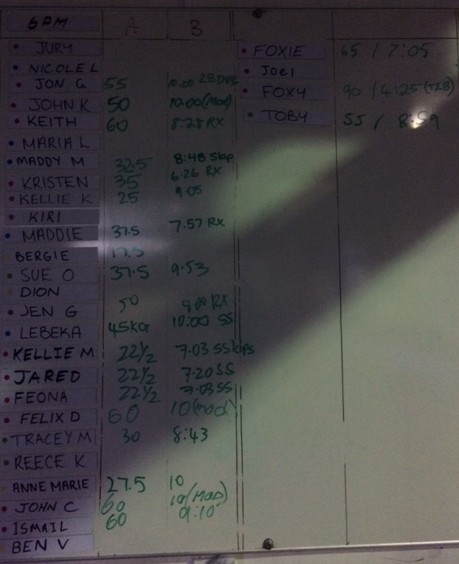 6PM A B
JURY
NICOLE L
JON G 55 10.00
JOHN K 50 10.00 (MOD)
KEITH 60 8:25 RX
MARIA L
MADDY M 32.5 8:48
KRISTEN 35 6:26 RX
KELLIE K 25 9.05
KIRI
MADDIE 37.5 7.57 RX
BERGIE 17.5
SUE O 37.5 9.53
DION
JEN G 50 RX
LEBEKA 45KG 10:00 SS
KELLIE M 22 1/2 7.03 SS
JARED 22 1/2 7.20 SS
FEONA 22 1/2 7.03 SS
FELIX D 60 10 (mod)
TRACEY M 30 8:43
REECE K
ANNE MARIE 27.5 10
JOHN C 60 10 (MOD)
ISMAIL 60 9:10
BEN V
FOXIE 65 / 7:05
JOEI
FOXY 90 / 4:25
TOBY 55 / 8:59